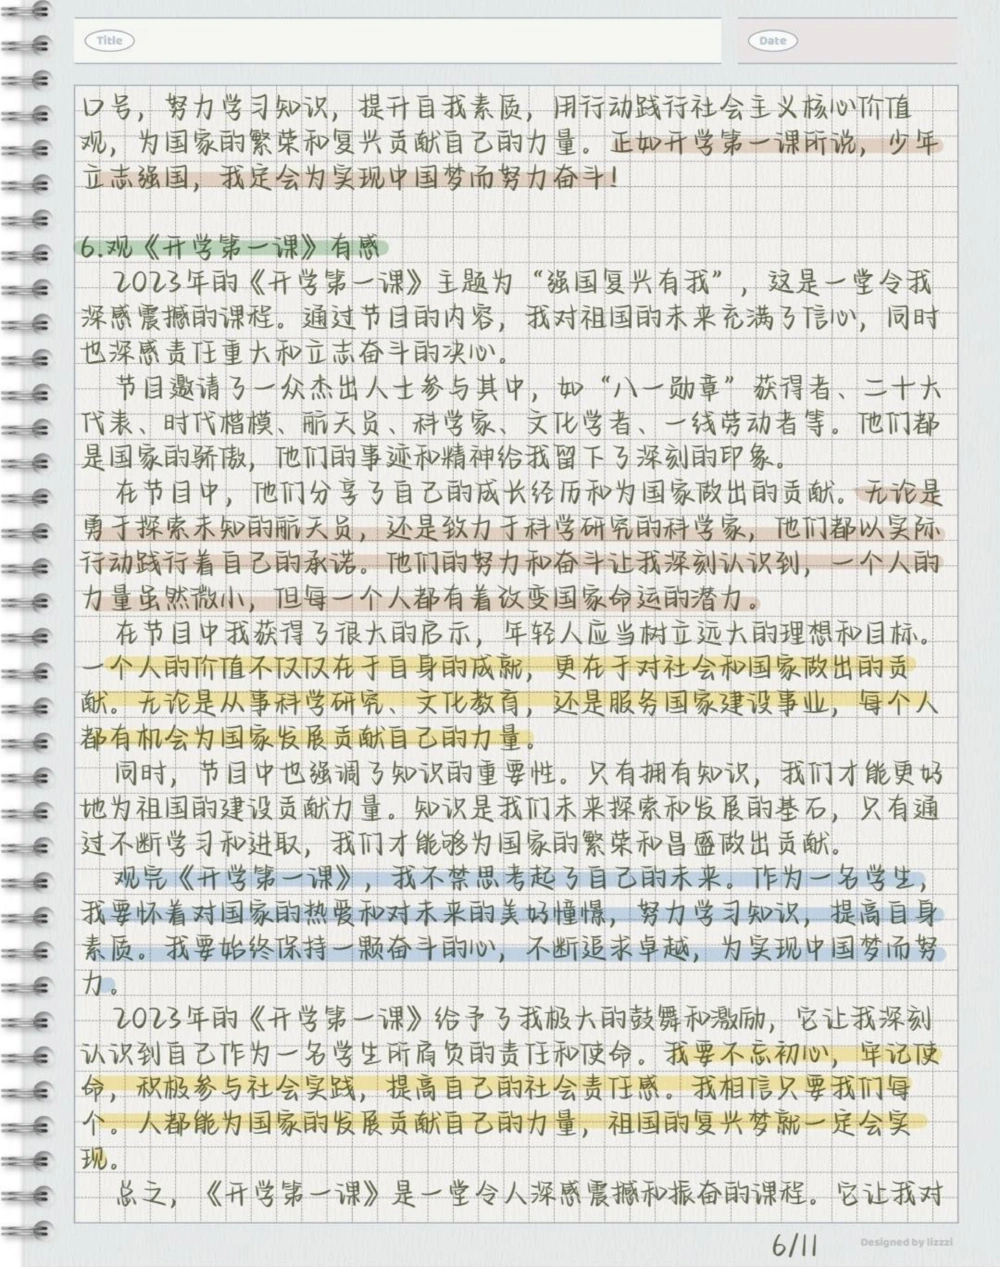 Title
Date
口号，努力学习知识，提升自我素质，用行动践行社会主义核心价值
观，为国家的繁荣和复兴贡献自己的力量。正如开学第一课所说，少年
立志强国，我定会为实现中国梦而努力奋斗！
6.观《开学第一课》有感
2023年的《开学第一课》主题为“强国复兴有我”，这是一堂令我
深感震撼的课程。通过节目的内容，我对祖国的未来充满了信心，同时
也深感责任重大和立志奋斗的决心。
节目邀请了一众杰出人士参与其中，如“八一勋章”获得者、二十大
代表、时代楷模、航天员、科学家、文化学者、一线劳动者等。他们都
是国家的骄傲，他们的事迹和精神给我留下了深刻的印象。
在节目中，他们分享了自己的成长经历和为国家做出的贡献。无论是
勇于探索未知的航天员，还是致力于科学研究的科学家，他们都以实际
行动践行着自己的承诺。他们的努力和奋斗让我深刻认识到，一个人的
力量虽然微小，但每一个人都有着改变国家命运的潜力。
在节目中我获得了很大的启示，年轻人应当树立远大的理想和目标。
一个人的价值不仅仅在于自身的成就，更在于对社会和国家做出的贡
献。无论是从事科学研究、文化教育，还是服务国家建设事业，每个人
都有机会为国家发展贡献自己的力量。
同时，节目中也强调了知识的重要性。只有拥有知识，我们才能更好
地为祖国的建设贡献力量。知识是我们未来探索和发展的基石，只有通
过不断学习和进取，我们才能够为国家的繁荣和昌盛做出贡献。
观完《开学第一课》，我不禁思考起了自己的未来。作为一名学生，
我要怀着对国家的热爱和对未来的美好憧憬，努力学习知识，提高自身
素质。我要始终保持一颗奋斗的心，不断追求卓越，为实现中国梦而努
力。
2023年的《开学第一课》给予了我极大的鼓舞和激励，它让我深刻
认识到自己作为一名学生所肩负的责任和使命。我要不忘初心，牢记使
命，积极参与社会实践，提高自己的社会责任感。我相信只要我们每
个。人都能为国家的发展贡献自己的力量，祖国的复兴梦就一定会实
现。
总之，《开学第一课》是一堂令人深感震撼和振奋的课程。它让我对
6/11
Designed by lizzzi